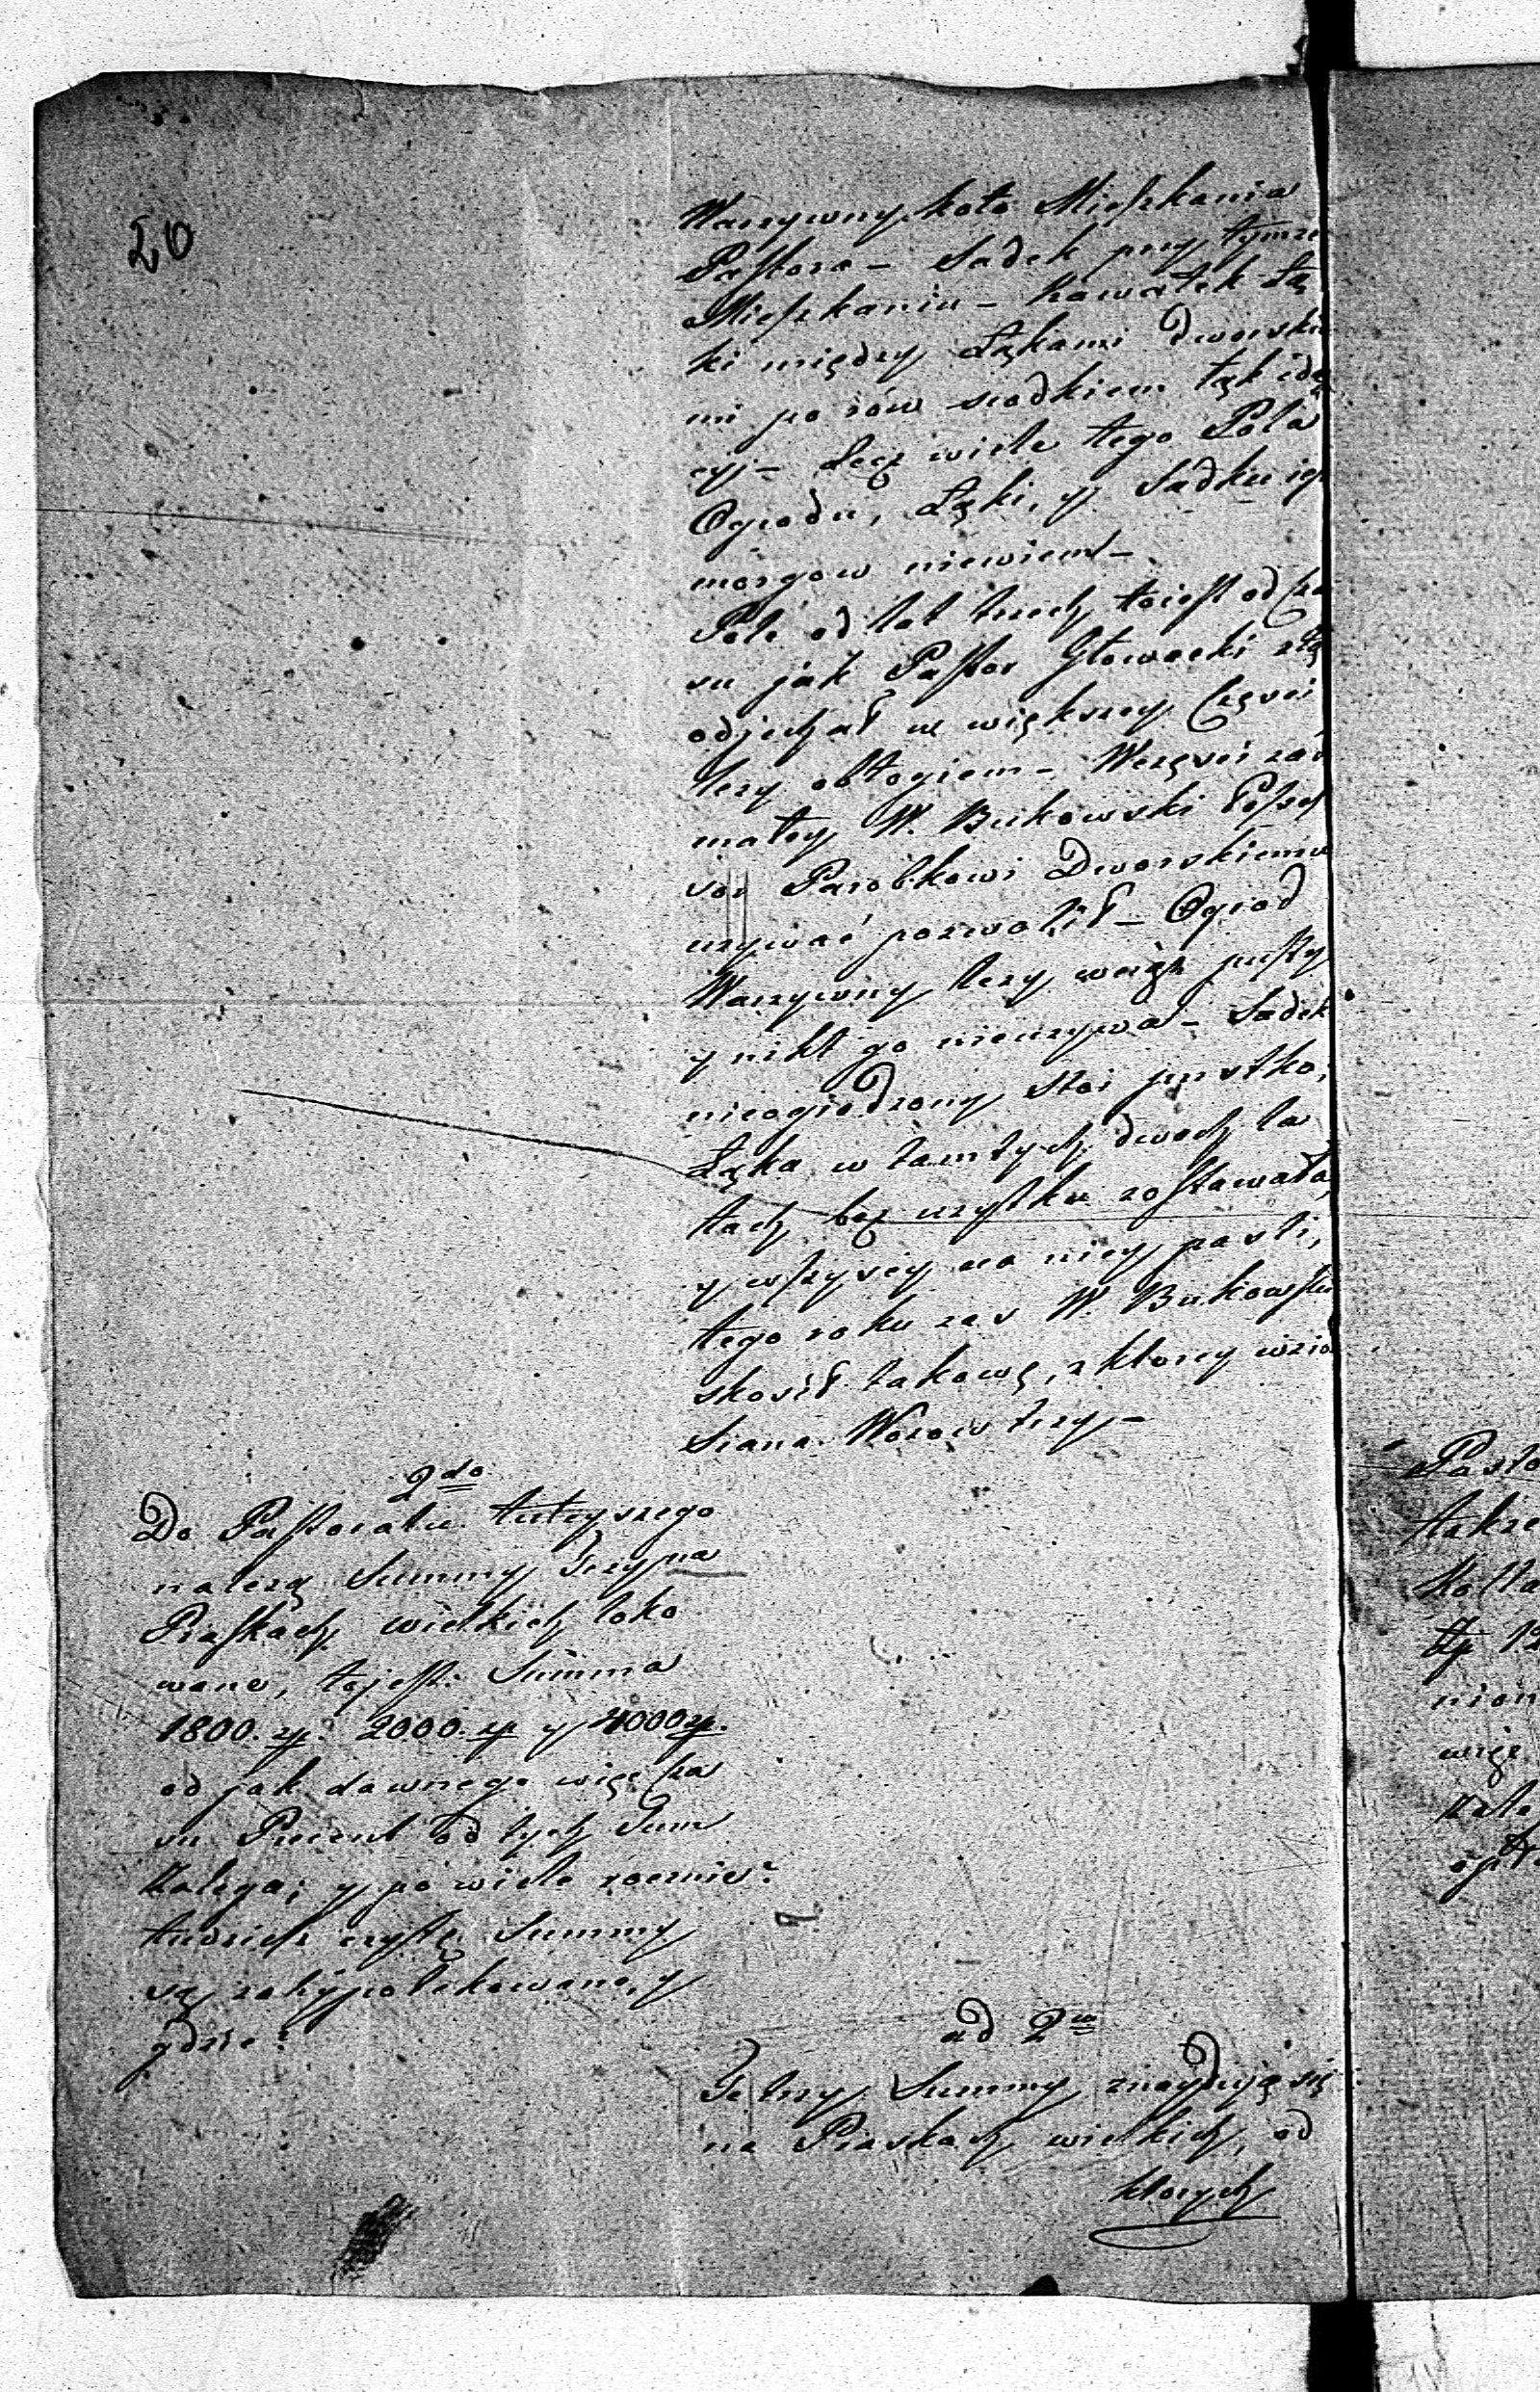 20
Warzywny koło Mieszkania
Pastora – Sadek przy tymże
Mieszkaniu – kawałek Łą
ki między Łąkami Dworski
mi po rów srodkiem łąk idą
cy – Lecz wiele tego Pola
Ogrodu, Łąki, y Sadku jest
morgow niewiem –
Pole od lat trzech toiest od Cza
su jak Pastor Głowacki ztąd
odjechał w większey Częsci
leży obłogiem – Wczęsci zaś
małey W. Bukowski Posses
sor Parobkowi Dworskiemu
używać pozwolił – Ogrod
Warzywny leży wciąż pusty
y nikt go nieużywa – Sadek
nieogrodzony stoi pustką,
Łąka w tamtych dwoch la
tach bez użytku zostawała,
y wszyscy na niey pasli,
tego roku zas W. Bukowski
skosił takową, z ktorey wzioł
Siana Wozow trzy –
2do
Do Pastoratu tuteyszego
należą Summy trzy na
Piaskach wielkich loko
wane, tojest: Summa
1800. zp. 2000. zp y 4000 zp.
od jak dawnego więc Cza
su Procent od tych Sum
Zalega; y po wiele rocznie?
tudzież czyli Summy
są zahypotekowane, y
gdzie?
ad 2um
Te trzy Summy znayduią się
na Piaskach wielkich, od
ktorych